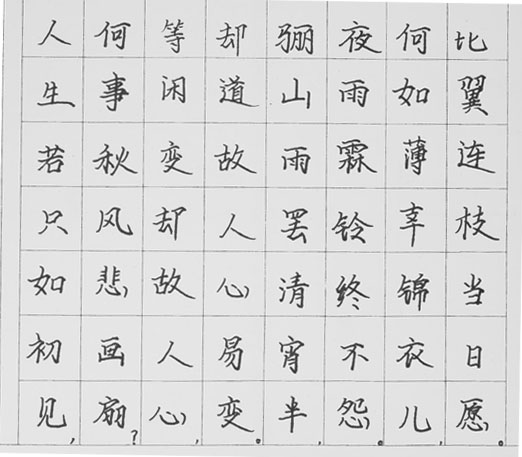 人生若只如初见,
何事秋风悲画扇?
等闲变却故人心,
却道故人心易变。
骊山雨罢清宵半,
夜雨霖铃终不怨。
何如薄幸锦衣儿,
比翼连枝当日愿。